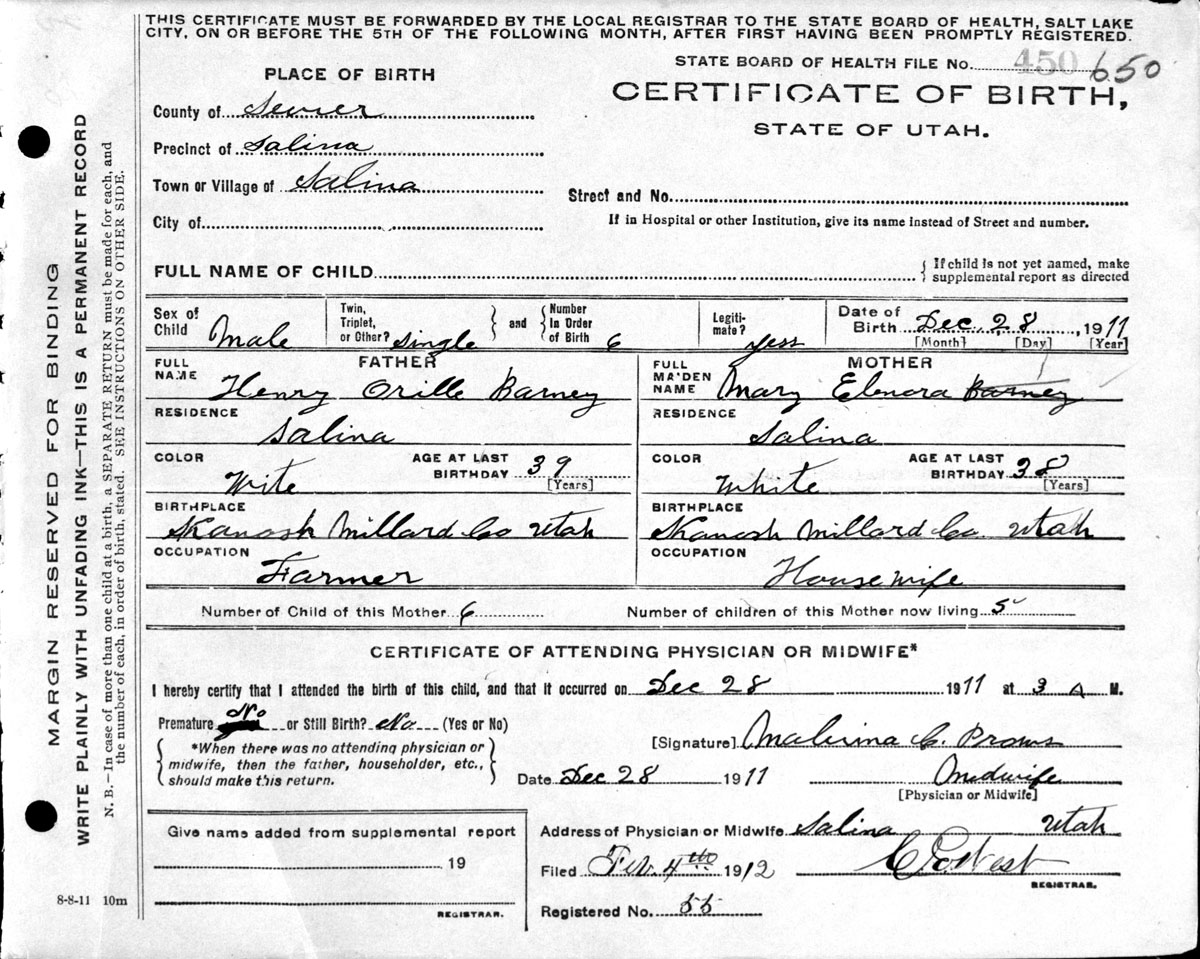 THIS CERTIFICATE MUST BE FORWARDED BY THE LOCAL REGISTRAR TO THE STATE BOARD OF HEALTH, SALT LAKE
CITY, ON OR BEFORE THE 5TH OF THE FOLLOWING MONTH, AFTER FIRST HAVING BEEN PROMPTLY REGISTERED.
STATE BOARD OF HEALTH FILE No. 450 650
PLACE OF BIRTH
CERTIFICATE OF BIRTH,
STATE OF UTAH.
County of Sevier
Precinct of Salina
Town or Village of Salina
Street and No.
City of
If in Hospital or other Institution, give its name instead of Street and number.
FULL NAME OF CHILD
{ If child is not yet named, make
supplemental report as directed
Sex of Child Male
Twin, Triplet, or Other? single } and { Number In Order of Birth 6
Legiti-mate? yess
Date of Birth Dec 28, 1911
[Month] [Day] [Year]
FATHER
FULL NAME Henry Orille Barney
RESIDENCE
Salina
COLOR
Wite
AGE AT LAST BIRTHDAY 39
[Years]
BIRTHPLACE
Kanosh Millard Co Utah
OCCUPATION
Farmer
MOTHER
FULL MAIDEN NAME Mary Elenora Barney
RESIDENCE
Salina
COLOR
White
AGE AT LAST BIRTHDAY 38
[Years]
BIRTHPLACE
Kanosh Millard Co. Utah
OCCUPATION
Housewife
Number of Child of this Mother 6 Number of children of this Mother now living 5
CERTIFICATE OF ATTENDING PHYSICIAN OR MIDWIFE*
I hereby certify that I attended the birth of this child, and that it occurred on Dec 28 1911 at 3 A M.
Premature No or Still Birth? No (Yes or No)
{ *When there was no attending physician or
midwife, then the father, householder, etc.,
should make this return. }
[Signature] Malvina C. Prows
Date Dec 28 1911 Midwife
[Physician or Midwife]
Give name added from supplemental report
19
REGISTRAR.
Address of Physician or Midwife Salina Utah
Filed Feb. 4th 1912
REGISTRAR.
Registered No. 55
8-8-11 10m
MARGIN RESERVED FOR BINDING
WRITE PLAINLY WITH UNFADING INK—THIS IS A PERMANENT RECORD
N. B.—In case of more than one child at a birth, a SEPARATE RETURN must be made for each, and
the number of each, in order of birth, stated. SEE INSTRUCTIONS ON OTHER SIDE.